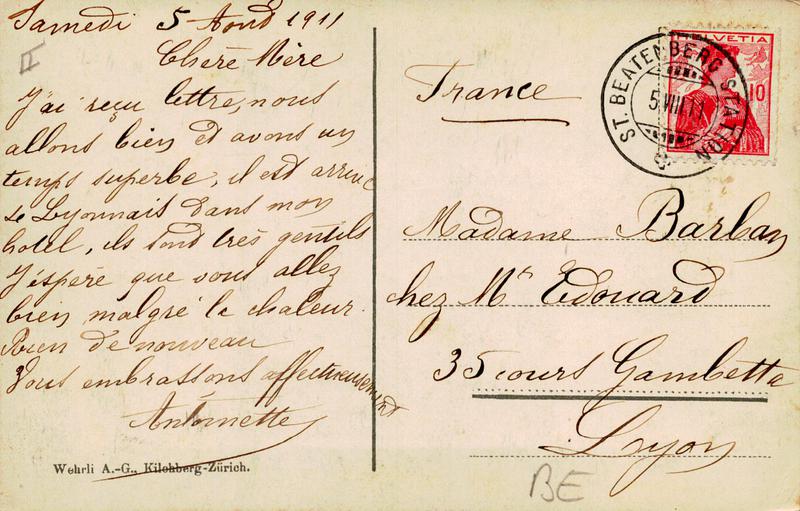 Samedi 5 Aout 1911
Chère Mère
J'ai reçu lettre, nous
allons bien et avons un
temps superbe, il est arrivé
de Lyonnais dans mon
hotel, ils sont très gentils
J'éspére que vous allez
bien malgré la chaleur.
Rien de nouveau
Vous embrassons affectueusement
Antoinette
Wehrli A.-G., Kilchberg-Zürich.
HELVETIA
10
ST. BEATENBERG STATION
5.VIII.11
France
Madame Barban
chez Mr Edouard
35 cours Gambetta
Lyon
BE